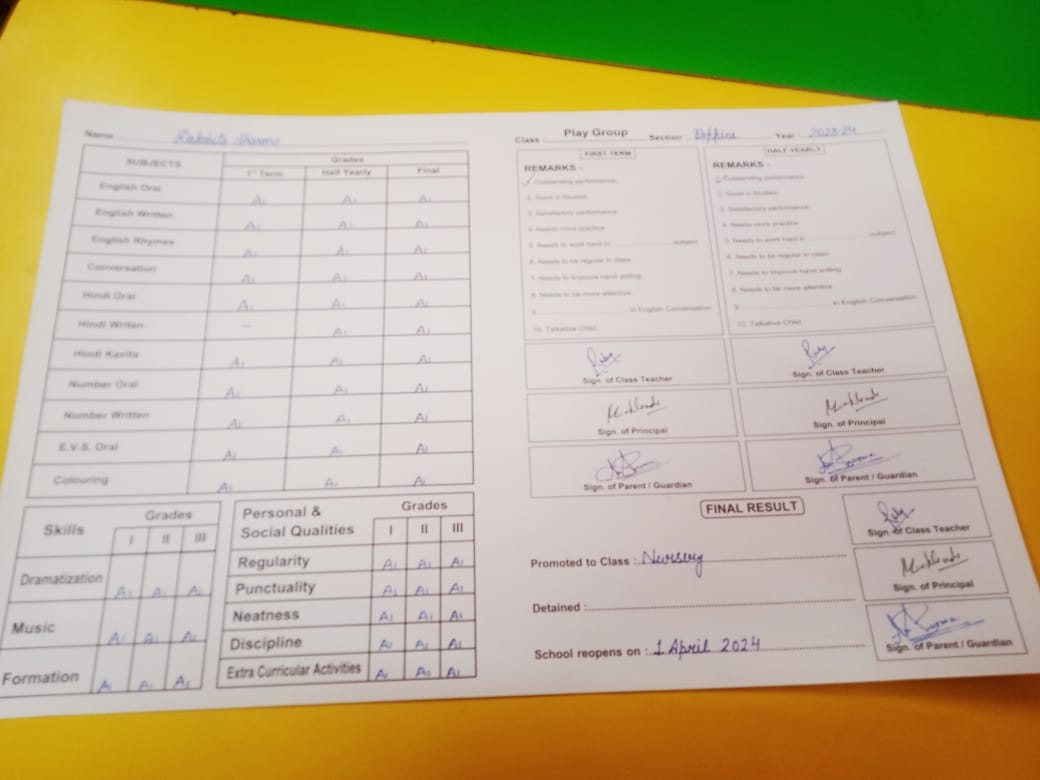 Name : Rakshita Sharma
SUBJECTS Grades
1st Term Half Yearly Final
English Oral A1 A1 A1
English Written A1 A1 A1
English Rhymes A1 A1 A1
Conversation A1 A1 A1
Hindi Oral A1 A1 A1
Hindi Written — A1 A1
Hindi Kavita A1 A1 A1
Number Oral A1 A1 A1
Number Written A1 A1 A1
E.V.S. Oral A1 A1 A1
Colouring A1 A1 A1
Skills Grades
I II III
Dramatization A1 A1 A1
Music A1 A1 A1
Formation A1 A1 A1
Personal & Social Qualities Grades
I II III
Regularity A1 A1 A1
Punctuality A1 A1 A1
Neatness A1 A1 A1
Discipline A1 A1 A1
Extra Curricular Activities A1 A1 A1
Class : Play Group Section : Year : 2023-24
FIRST TERM
REMARKS -
1. Outstanding performance.
2. Good in Studies.
3. Satisfactory performance
4. Needs more practice
5. Needs to work hard in ........................ subject.
6. Needs to be regular in class
7. Needs to improve hand writing.
8. Needs to be more attentive.
9. ........................ in English Conversation
10. Talkative Child.
Sign. of Class Teacher
Sign. of Principal
Sign. of Parent / Guardian
HALF YEARLY
REMARKS -
1. Outstanding performance.
2. Good in Studies.
3. Satisfactory performance.
4. Needs more practice
5. Needs to work hard in ........................ subject.
6. Needs to be regular in class.
7. Needs to improve hand writing.
8. Needs to be more attentive.
9. ........................ in English Conversation.
10. Talkative Child.
Sign. of Class Teacher
Sign. of Principal
Sign. of Parent / Guardian
FINAL RESULT
Promoted to Class : Nursery
Detained :
School reopens on : 1 April 2024
Sign. of Class Teacher
Sign. of Principal
Sign. of Parent / Guardian